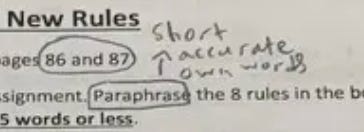 New Rules
short
ages 86 and 87
↑ accurate
own words
ssignment. Paraphrase the 8 rules in the b
5 words or less.